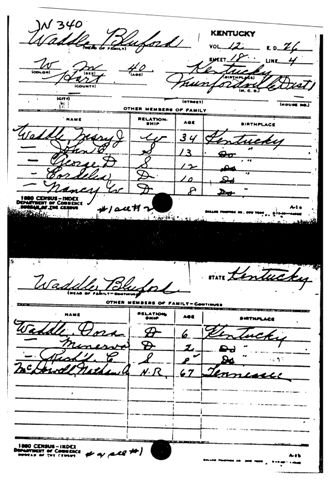 W 340
Waddle, Bluford
(HEAD OF FAMILY)
KENTUCKY
VOL. 12 E.D. 76
SHEET 18 LINE 4
W M 40 Kentucky
(COLOR) (SEX) (AGE) (BIRTHPLACE)
Hart Munfordville Dist
(COUNTY) (M. C. D.)
(CITY) (STREET) (HOUSE NO.)
OTHER MEMBERS OF FAMILY
NAME RELATIONSHIP AGE BIRTHPLACE
Waddle Mary J W 34 Kentucky
— John C S 13 Do "
— George D S 12 Do "
— Cordelia D 10 Do "
— Nancy W D 8 Do "
1880 CENSUS - INDEX
DEPARTMENT OF COMMERCE
BUREAU OF THE CENSUS
#1 see #2
A-1a
Waddle, Bluford
STATE Kentucky
(HEAD OF FAMILY—CONTINUED)
OTHER MEMBERS OF FAMILY—CONTINUED
NAME RELATIONSHIP AGE BIRTHPLACE
Waddle, Dora D 6 Kentucky
— Minerva D 2 Do "
S Do "
McDowell, Nathan N.R. 67 Tennessee
1880 CENSUS - INDEX
DEPARTMENT OF COMMERCE
BUREAU OF THE CENSUS
#2 see #1
A-1b